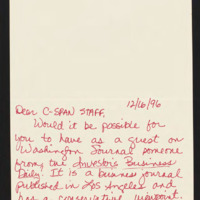 12/6/96
Dear C-SPAN STAFF,
Would it be possible for
you to have as a guest on
Washington Journal someone
from the Investor's Business
Daily? It is a business journal
published in Los Angeles and
has a conservative viewpoint.